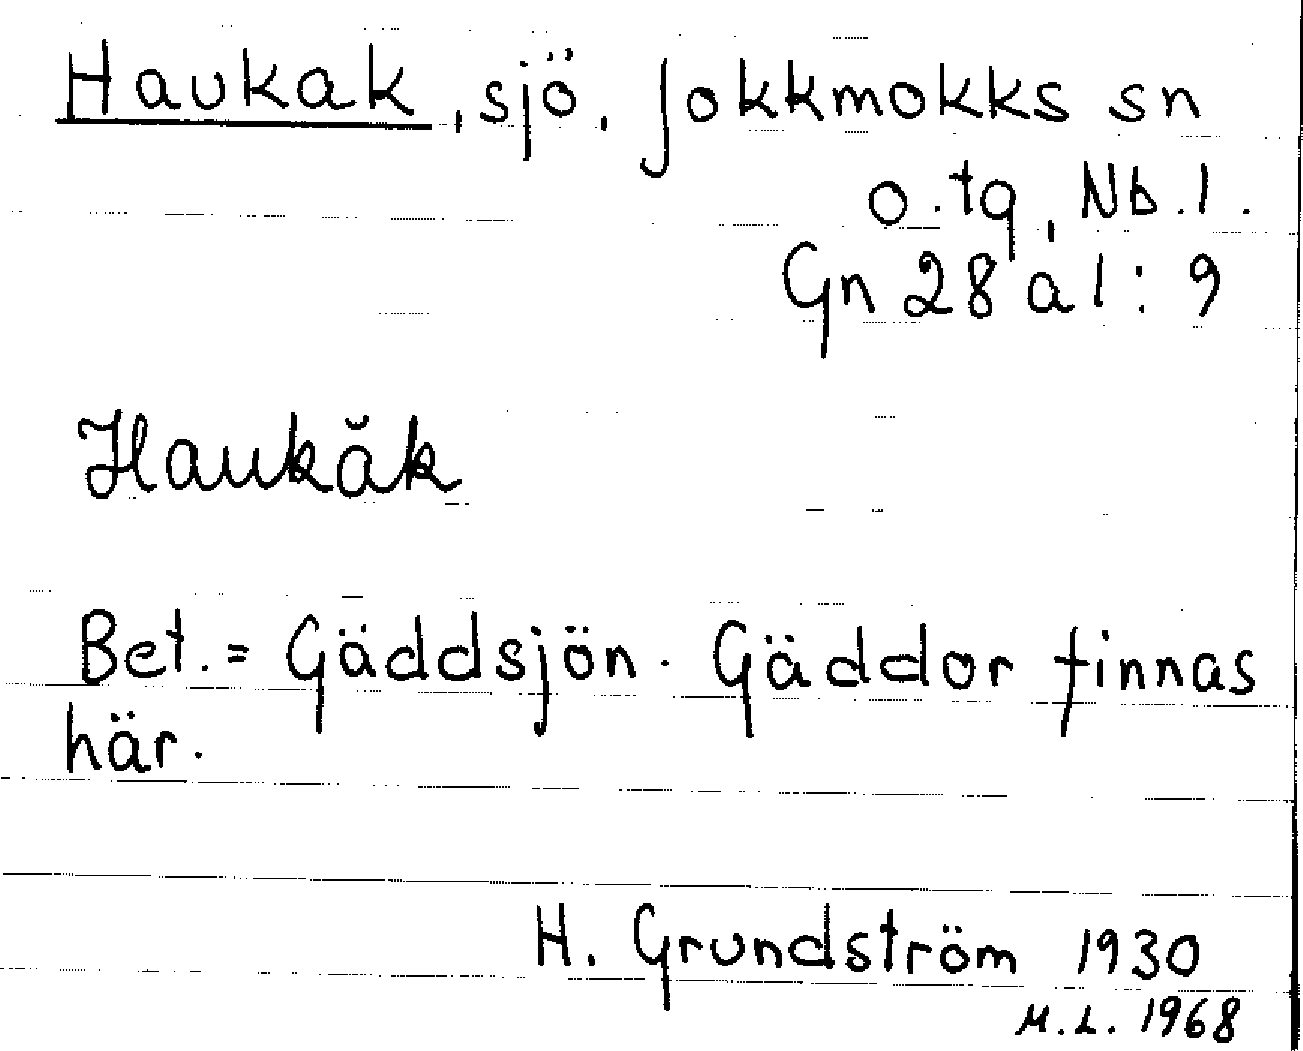 Haukak, sjö, Jokkmokks sn
o. tg, Nb. l.
Gn 28 a l : 9
Haukăk
Bet. = Gäddsjön. Gäddor finnas
här.
H. Grundström 1930
M. L. 1968